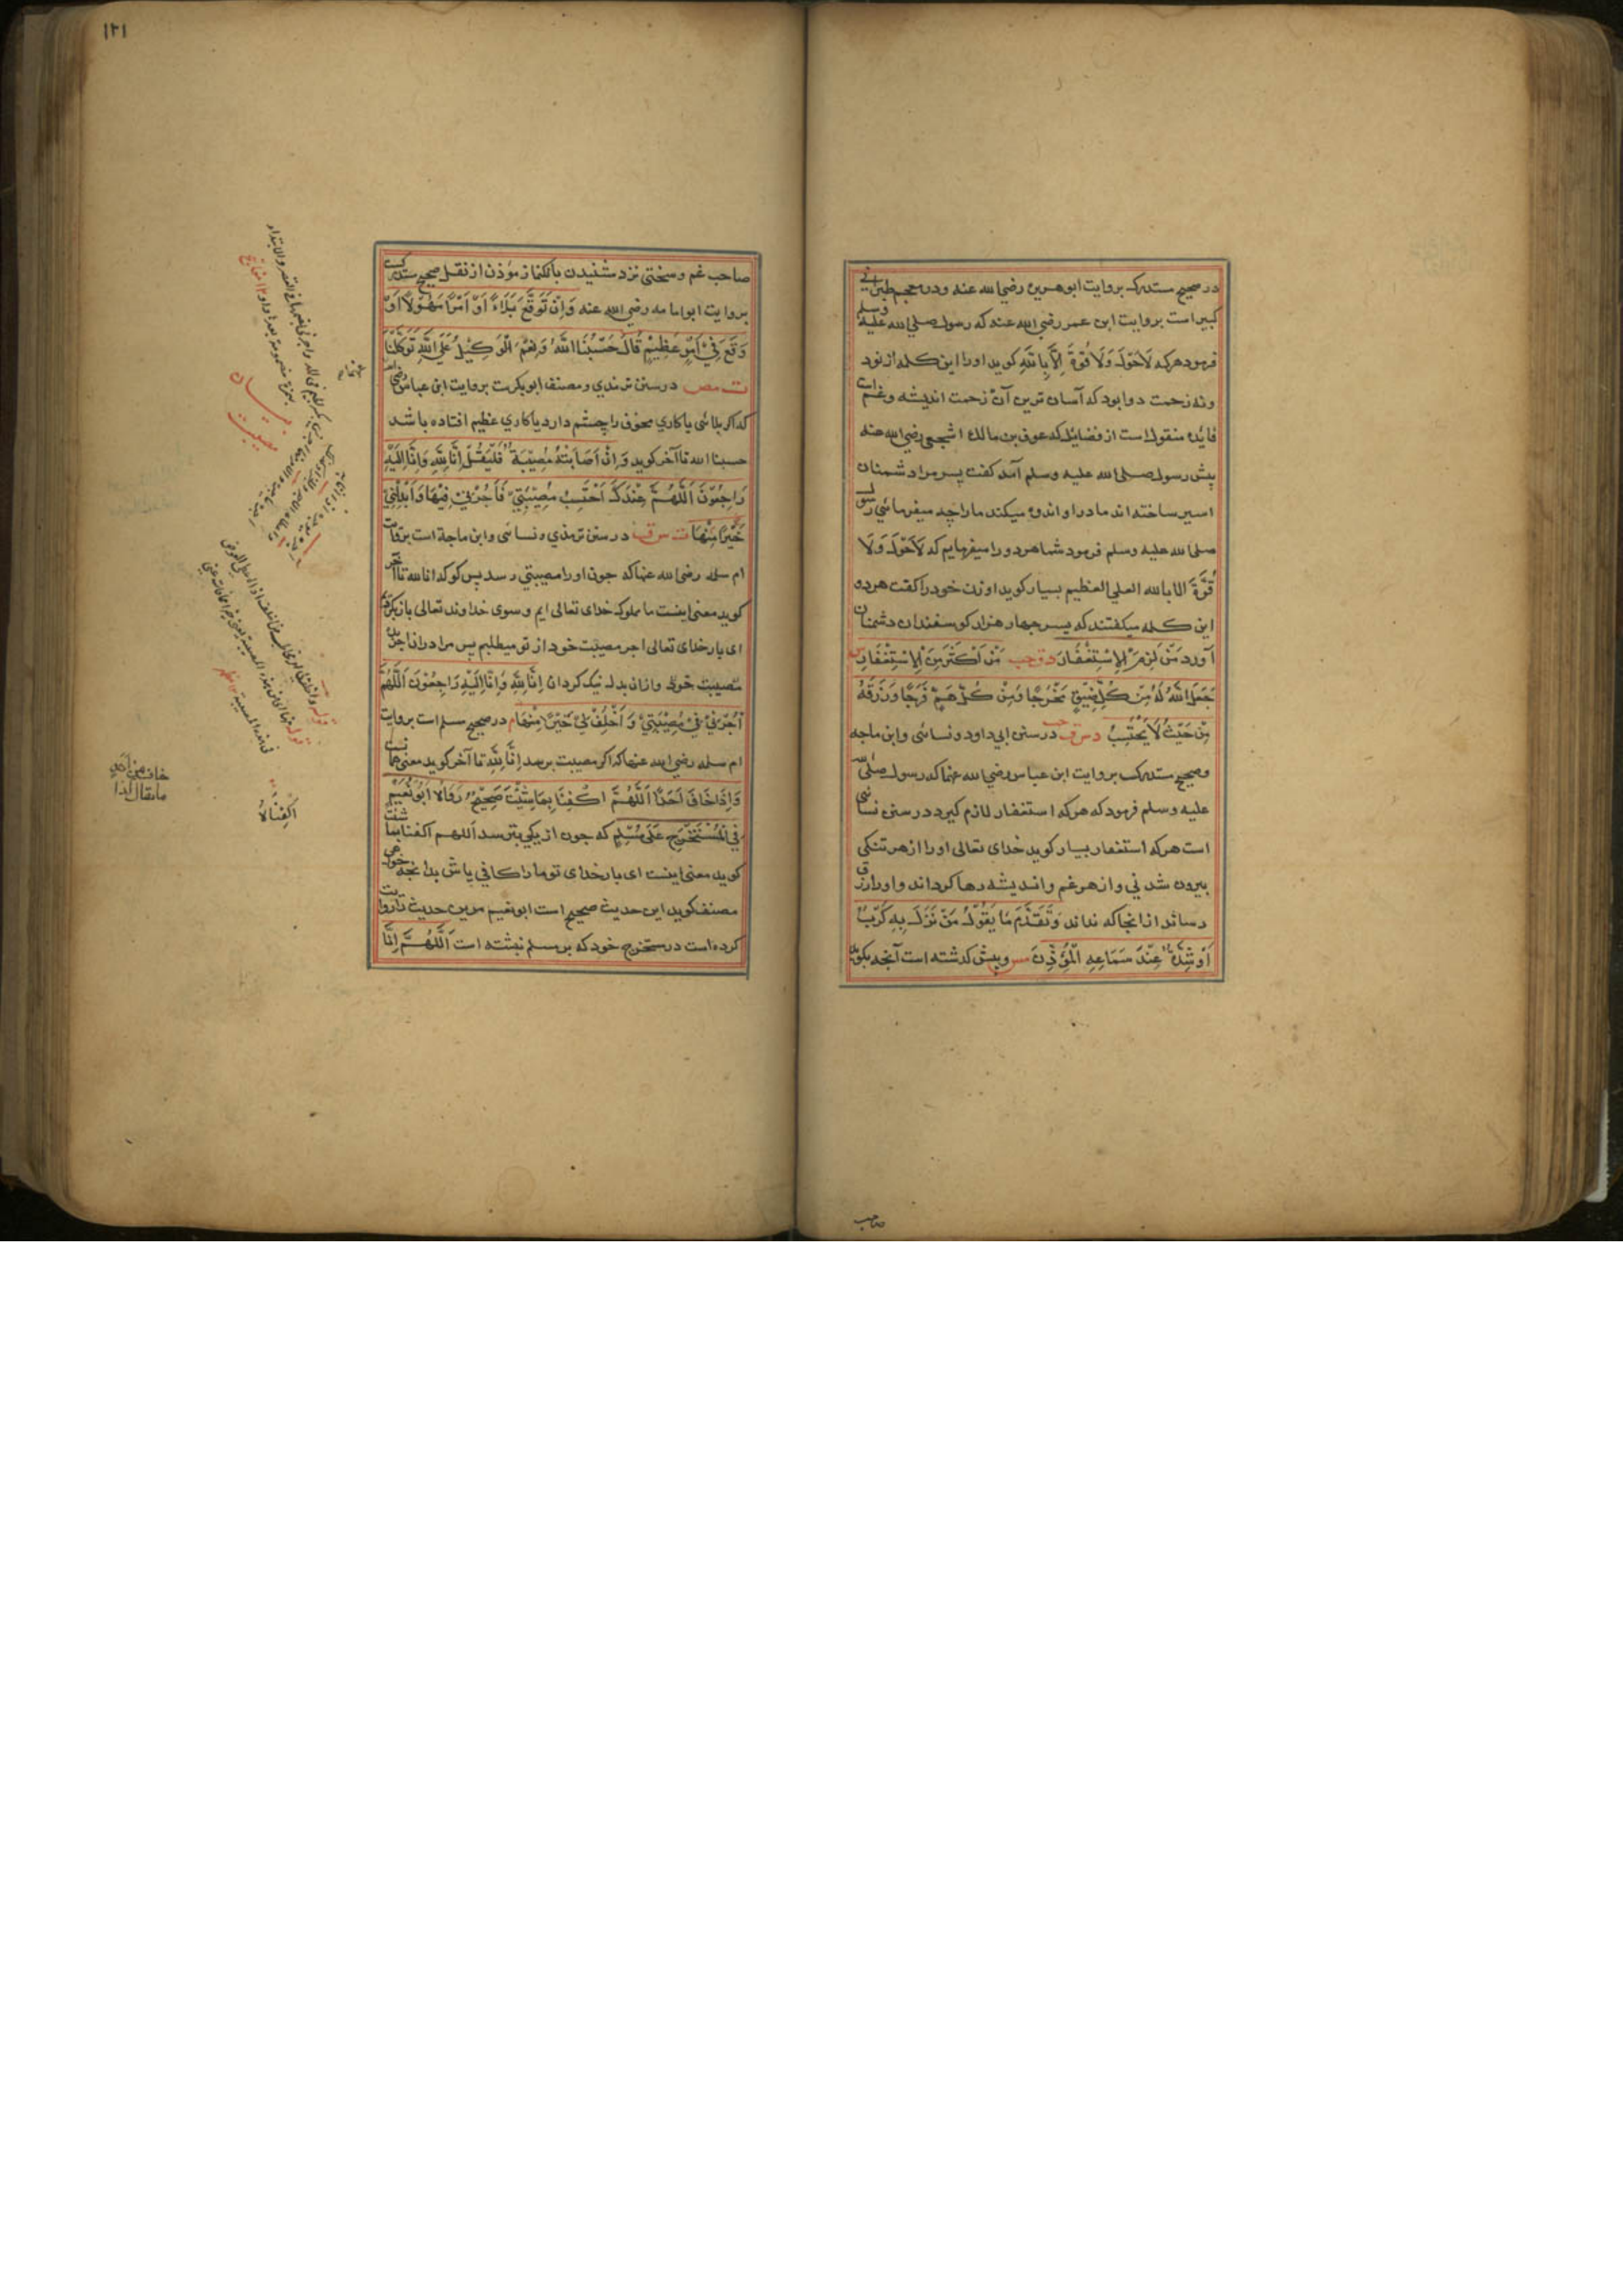 در صحیح مستدرک بروایت ابوهریره رضی الله عنه ودر معجم طبرانی
کبیر است بروایت ابن عمر رضی الله عنه که رسول صلی الله علیه وسلم
فرمود هرکه لَاحَوْلَ وَلَا قُوَّةَ اِلَّا بِاللّٰهِ کوید اورا این کلمه از نود
ونه زحمت دوا بود که آسان ترین آن زحمت اندیشه وغم است
فایده منقول است از فضائل که عوف بن مالک اشجعی رضی الله عنه
پیش رسول صلی الله علیه وسلم آمد کفت پسر مرا دشمنان
اسیر ساخته اند مادر او اندوه میکند مارا چه میفرمائی رسول
صلی الله علیه وسلم فرمود شما هردو را میفرمایم که لَاحَوْلَ وَلَا
قُوَّةَ الا بالله العلی العظیم بسیار کوید او زن خود را کفت هردو
این کلمه میکفتند که پسر چهار هزار کوسفندان دشمنان
آورد مَنْ لَزِمَ الْاِسْتِغْفَارَ د ق حب مَنْ اَكْثَرَ مِنَ الْاِسْتِغْفَارِ س
جَعَلَ اللّٰهُ لَهُ مِنْ كُلِّ ضِيْقٍ مَخْرَجًا وَمِنْ كُلِّ هَمٍّ فَرَجًا وَرَزَقَهُ
مِنْ حَيْثُ لَا يَحْتَسِبُ د س ق حب در سنن ابی داود ونسائی وابن ماجه
وصحیح مستدرک بروایت ابن عباس رضی الله عنهما که رسول صلی الله
علیه وسلم فرمود که هرکه استغفار لازم کیرد در سنن نسائی
است هرکه استغفار بسیار کوید خدای تعالی اورا از هر تنکی
بیرون شدنی واز هر غم واندیشه رها کرداند واورا رزق
رساند از انجا که نداند وَتَقَدَّمَ مَا يَقُوْلُ مَنْ نَزَلَ بِهِ كَرْبٌ
اَوْ شِدَّةٌ عِنْدَ سَمَاعِهِ الْمُؤَذِّنَ مس وپیش کذشته است آنچه بکوید
صاحب
۱۲۱
صاحب غم وسختی نزد شنیدن بانکنماز مؤذن از نقل صحیح مستدرکست
بروایت ابوامامه رضی الله عنه وَاِنْ تَوَقَّعَ بَلَاءً اَوْ اَمْرًا مَهُوْلًا اَوْ
وَقَعَ فِيْ اَمْرٍ عَظِيْمٍ قَالَ حَسْبُنَا اللّٰهُ وَنِعْمَ الْوَكِيْلُ عَلَى اللّٰهِ تَوَكَّلْنَا
ت مص در سنن ترمذی ومصنف ابوبکرست بروایت ابن عباس رضی الله
که اکر بلائی یا کاری مخوف را چشم دارد یا کاری عظیم افتاده باشد
حسبنا الله تا آخر کوید وَاِنْ اَصَابَتْهُ مُصِيْبَةٌ فَلْيَقُلْ اِنَّا لِلّٰهِ وَاِنَّا اِلَيْهِ
رَاجِعُوْنَ اَللّٰهُمَّ عِنْدَكَ اَحْتَسِبُ مُصِيْبَتِيْ فَأْجُرْنِيْ فِيْهَا وَاَبْدِلْنِيْ
خَيْرًا مِنْهَا ت س ق در سنن ترمذی ونسائی وابن ماجة است بروایت
ام سلمه رضی الله عنها که چون اورا مصیبتی رسد پس کو که انا لله تا آخر
کوید معنی اینست ما مملوک خدای تعالی ایم وسوی خداوند تعالی بازکردیم
ای بار خدای تعالی اجر مصیبت خود از تو میطلبم پس مرا دران اجر ده
مصیبت خود وازان بدل نیک کردان اِنَّا لِلّٰهِ وَاِنَّا اِلَيْهِ رَاجِعُوْنَ اَللّٰهُمَّ
اْجُرْنِيْ فِيْ مُصِيْبَتِيْ وَاَخْلِفْ لِيْ خَيْرًا مِنْهَا م در صحیح مسلم است بروایت
ام سلمه رضی الله عنها که اکر مصیبت برسد اِنَّا لِلّٰهِ تا آخر کوید معنی همانست
وَاِذَا خَافَ اَحَدًا اَللّٰهُمَّ اكْفِنَا بِمَا شِئْتَ صَحِيْحٌ رَوَاهُ اَبُوْ نُعَيْمٍ
فِي الْمُسْتَخْرَجِ عَلٰى مُسْلِمٍ که چون از یکی بترسد اللهم اکفنا بما شئت
کوید معنی اینست ای بار خدای تو مارا کافی باش بدانچه خواهی
مصنف کوید این حدیث صحیح است ابونعیم مرین حدیث را روایت
کرده است در مستخرج خود که بر مسلم نبشته است اَللّٰهُمَّ اِنَّا
اکفناه